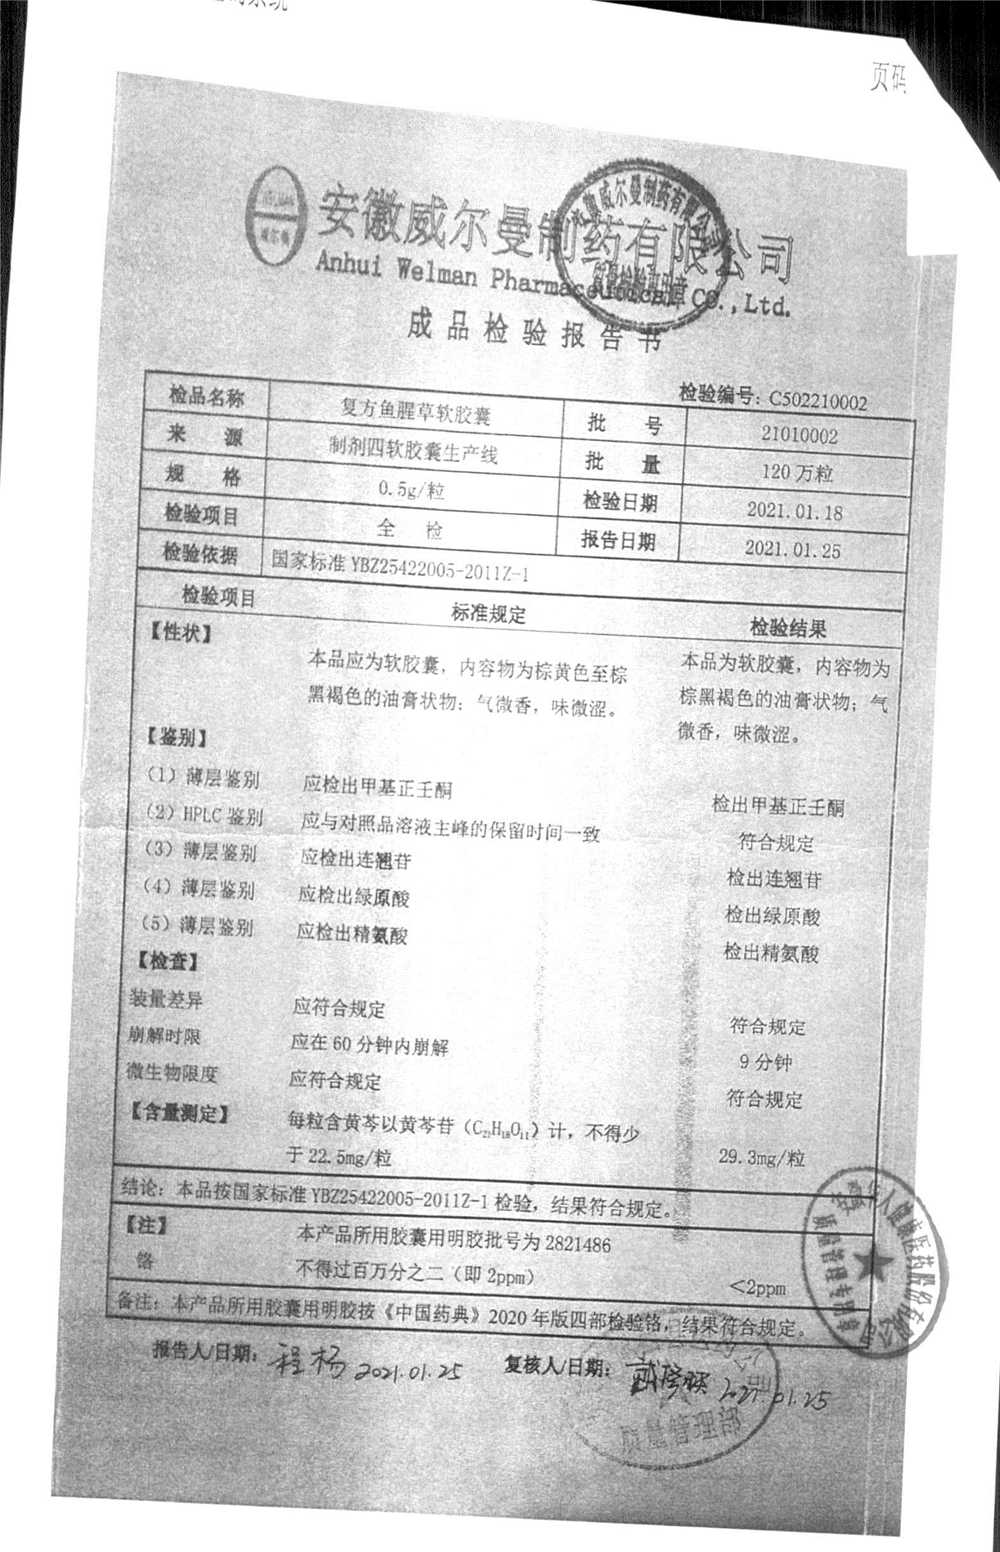 页码
安徽威尔曼制药有限公司
Anhui Welman Pharmaceutical CO.,Ltd.
成品检验报告书
检验编号: C502210002
检品名称 复方鱼腥草软胶囊 批号 21010002
来源 制剂四软胶囊生产线 批量 120万粒
规格 0.5g/粒 检验日期 2021.01.18
检验项目 全检 报告日期 2021.01.25
检验依据 国家标准YBZ25422005-2011Z-1
检验项目 标准规定 检验结果
【性状】
本品应为软胶囊，内容物为棕黄色至棕 本品为软胶囊，内容物为
黑褐色的油膏状物；气微香，味微涩。 棕黑褐色的油膏状物；气
微香，味微涩。
【鉴别】
(1) 薄层鉴别 应检出甲基正壬酮 检出甲基正壬酮
(2) HPLC鉴别 应与对照品溶液主峰的保留时间一致 符合规定
(3) 薄层鉴别 应检出连翘苷 检出连翘苷
(4) 薄层鉴别 应检出绿原酸 检出绿原酸
(5) 薄层鉴别 应检出精氨酸 检出精氨酸
【检查】
装量差异 应符合规定 符合规定
崩解时限 应在60分钟内崩解 9分钟
微生物限度 应符合规定 符合规定
【含量测定】 每粒含黄芩以黄芩苷（C₂₁H₁₈O₁₁）计，不得少
于22.5mg/粒 29.3mg/粒
结论：本品按国家标准YBZ25422005-2011Z-1检验，结果符合规定。
【注】 本产品所用胶囊用明胶批号为2821486
铬 不得过百万分之二（即2ppm） <2ppm
备注：本产品所用胶囊用明胶按《中国药典》2020年版四部检验铬，结果符合规定。
报告人/日期: 程杨 2021.01.25 复核人/日期: 2021.01.25
质量管理部
质量管理专用章